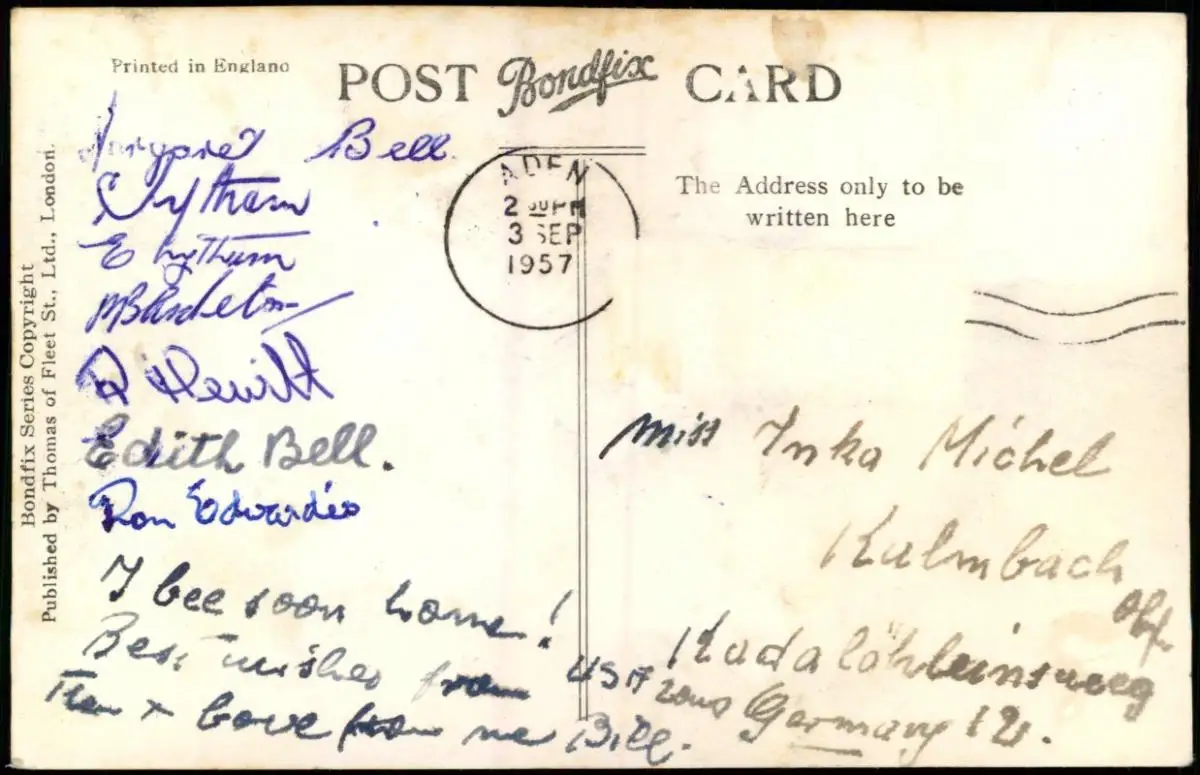 Printed in England
POST Bondfix CARD
Bell
ADEN
2 PM
3 SEP
1957
The Address only to be
written here
Hewitt
Edith Bell.
Ron Edwardes
I bee soon home!
Best wishes from
love from me Bill.
Miss Inka Michel
Kulmbach
USA Zone Germany
Bondfix Series Copyright
Published by Thomas of Fleet St., Ltd., London.